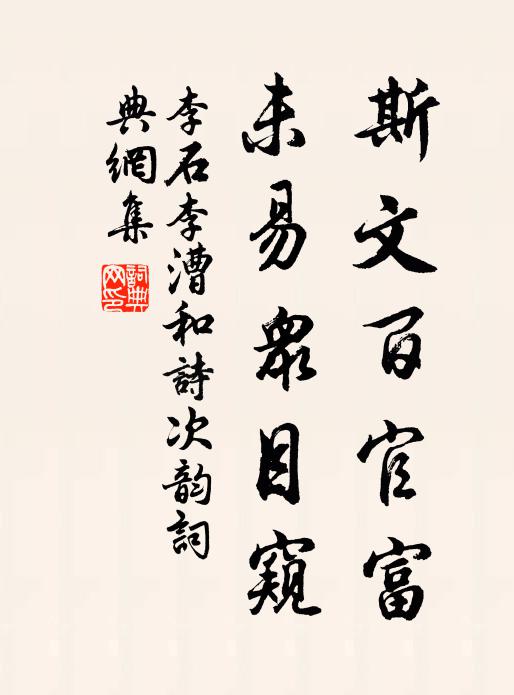 斯文百官富
未易衆目窺
李石李漕和詩次韵詞
典網集
詞典网印